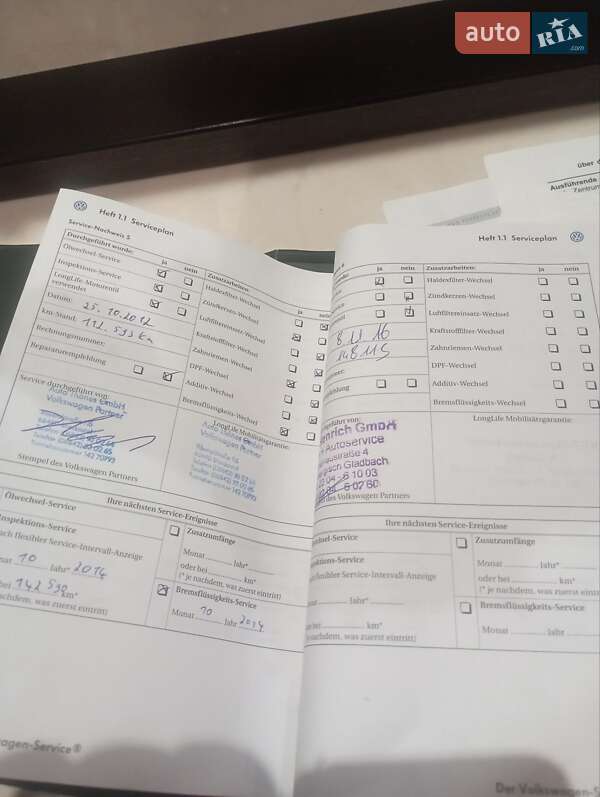 auto RIA
.com
über d
Ausführende
Zentrum
Heft 1.1 Serviceplan
Service-Nachweis 5
Durchgeführt wurde: ja nein
Ölwechsel-Service
Inspektions-Service
LongLife-Motorenöl
verwendet
Datum: 25. 10. 2012
km-Stand: 112.593 km
Rechnungsnummer:
Reparaturempfehlung
Service durchgeführt von:
Auto Thönes GmbH
Volkswagen Partner
Stempel des Volkswagen Partners
Zusatzarbeiten: ja nein
Haldexfilter-Wechsel
Zündkerzen-Wechsel
Luftfiltereinsatz-Wechsel
Kraftstofffilter-Wechsel
Zahnriemen-Wechsel
DPF-Wechsel
Additiv-Wechsel
Bremsflüssigkeits-Wechsel
LongLife Mobilitätsgarantie:
Ihre nächsten Service-Ereignisse
Ölwechsel-Service
Inspektions-Service
ach flexibler Service-Intervall-Anzeige
nat 10 Jahr* 2014
bei 142.590 km*
nachdem, was zuerst eintritt)
Zusatzumfänge
Monat Jahr*
oder bei km*
(* je nachdem, was zuerst eintritt)
Bremsflüssigkeits-Service
Monat 10 Jahr 2014
wagen-Service®
Heft 1.1 Serviceplan
ja nein
8 11 16
148 115
Zusatzarbeiten: ja nein
Haldexfilter-Wechsel
Zündkerzen-Wechsel
Luftfiltereinsatz-Wechsel
Kraftstofffilter-Wechsel
Zahnriemen-Wechsel
DPF-Wechsel
Additiv-Wechsel
Bremsflüssigkeits-Wechsel
LongLife Mobilitätsgarantie:
führt von:
nrich GmbH
Autoservice
gisch Gladbach
des Volkswagen Partners
Ihre nächsten Service-Ereignisse
chsel-Service
ktions-Service
flexibler Service-Intervall-Anzeige
Jahr*
km*
nachdem, was zuerst eintritt)
Zusatzumfänge
Monat Jahr*
oder bei km*
(* je nachdem, was zuerst eintritt)
Bremsflüssigkeits-Service
Monat Jahr
Der Volkswagen-S